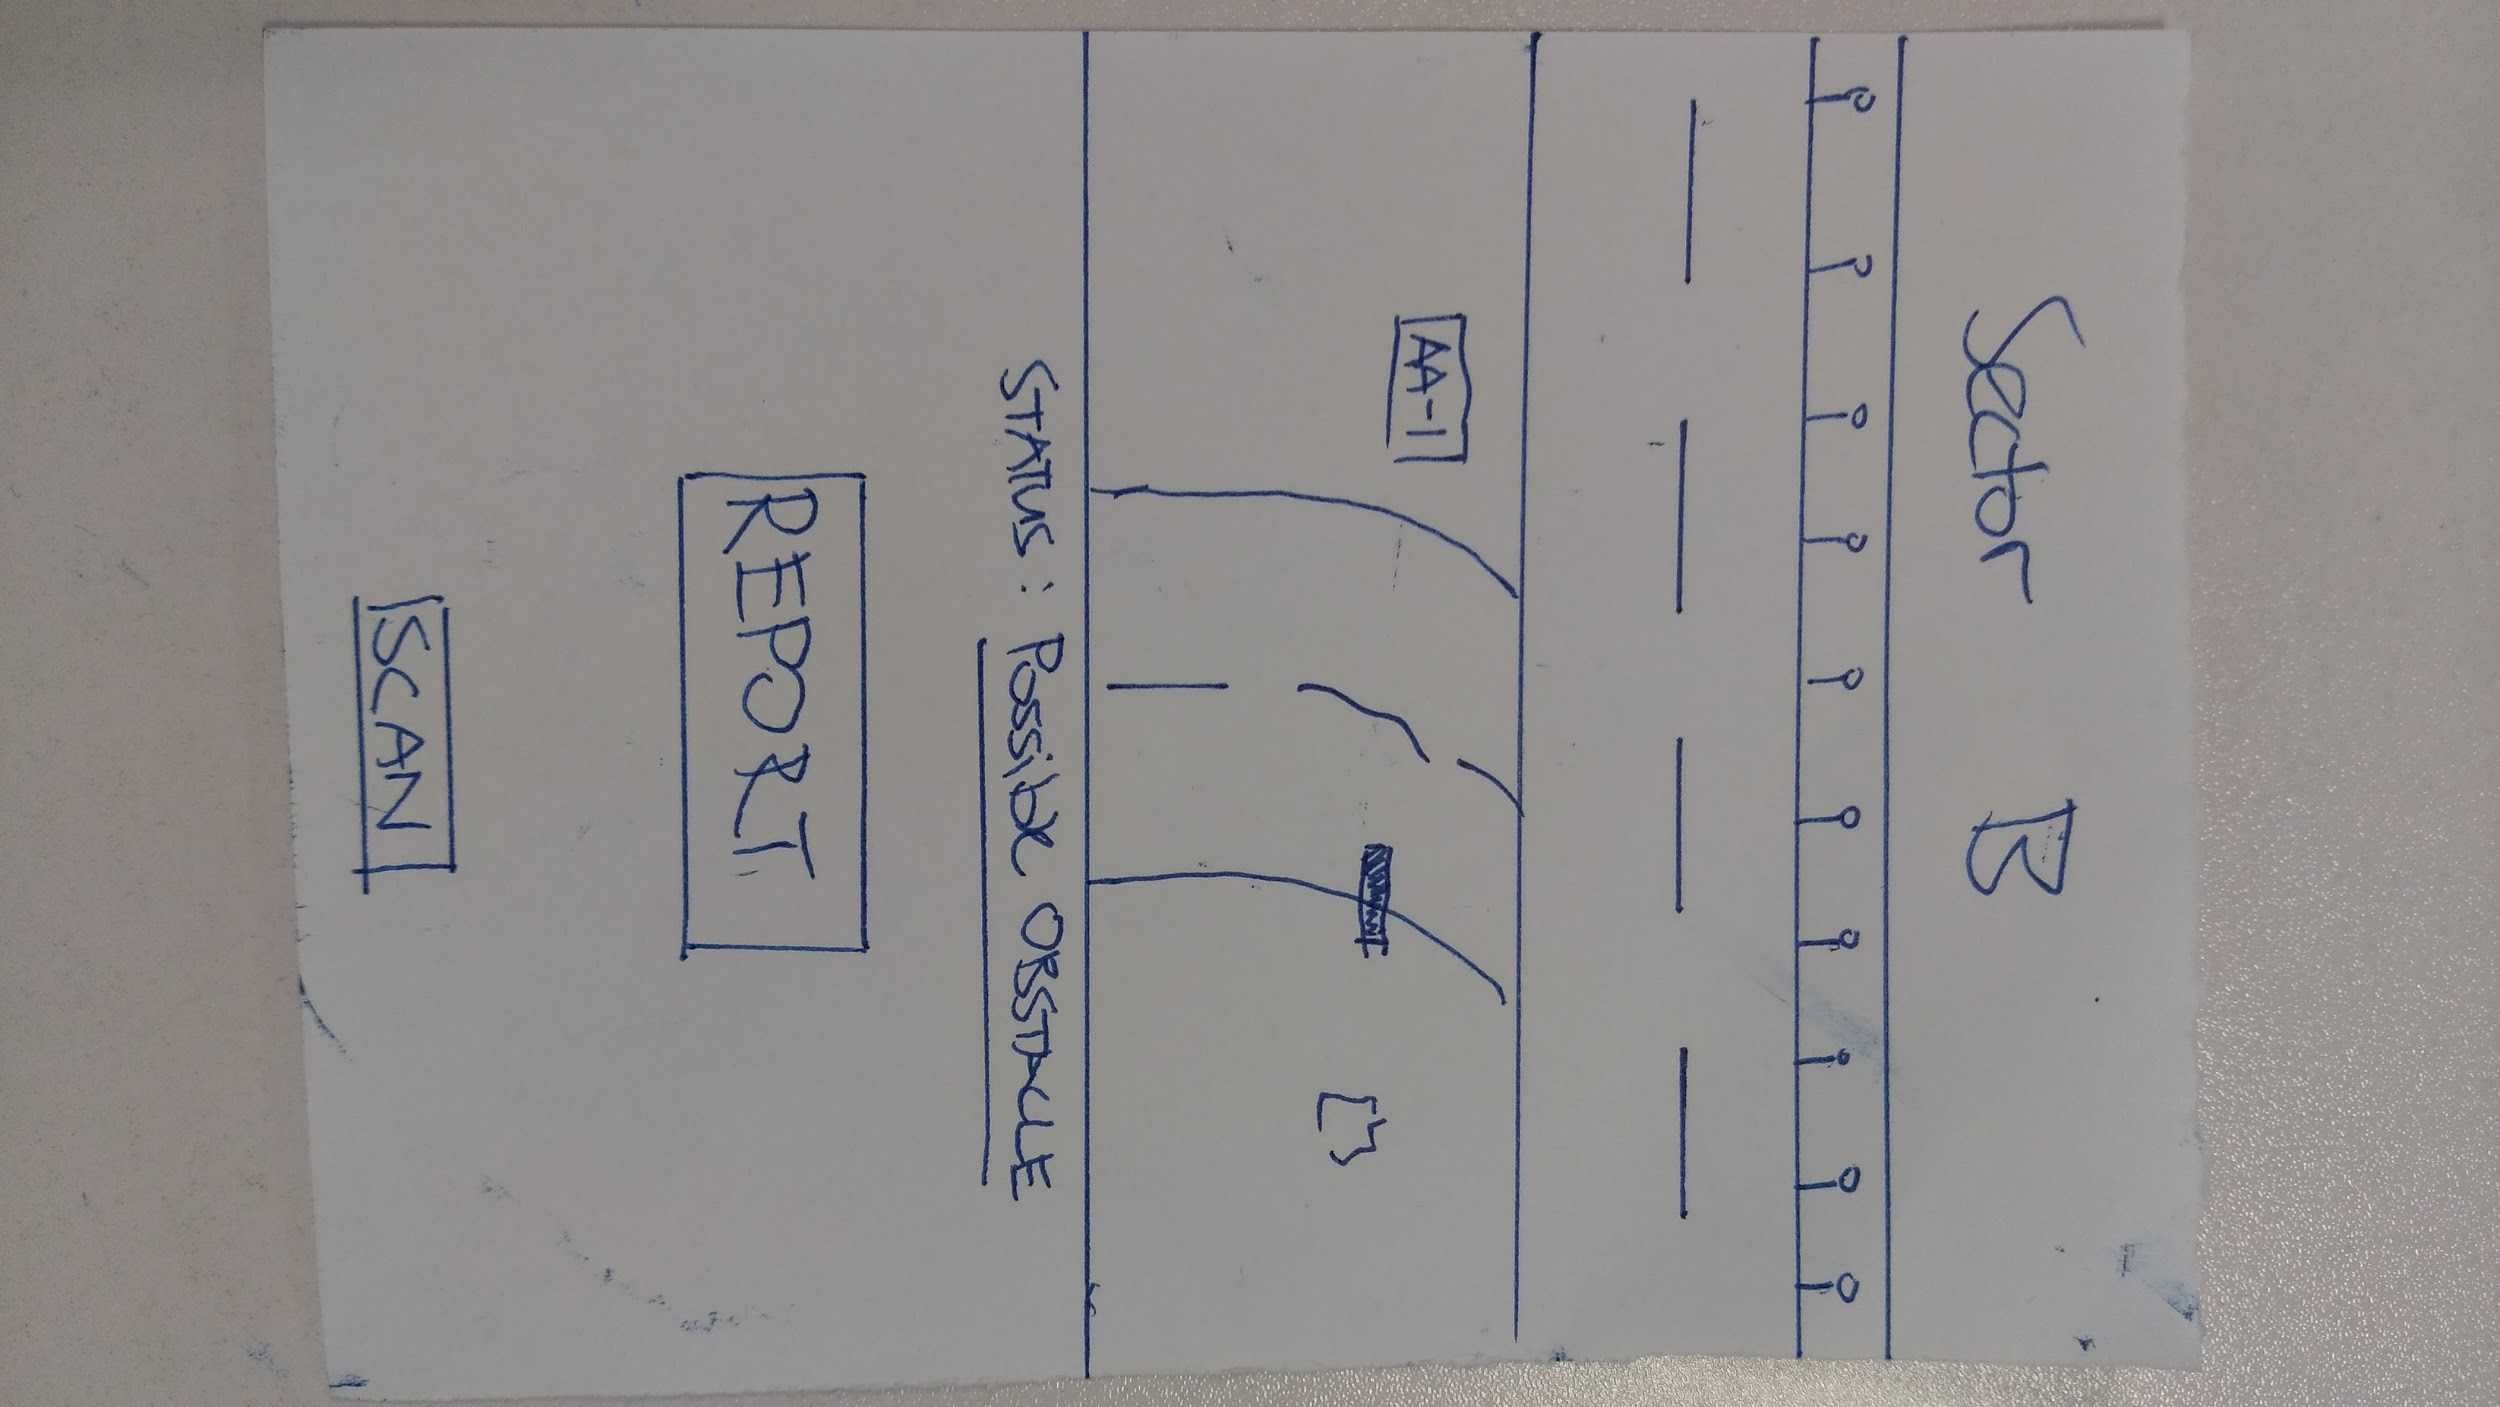 Sector B
AA-1
STATUS: Possible OBSSTACLE
REPORT
SCAN